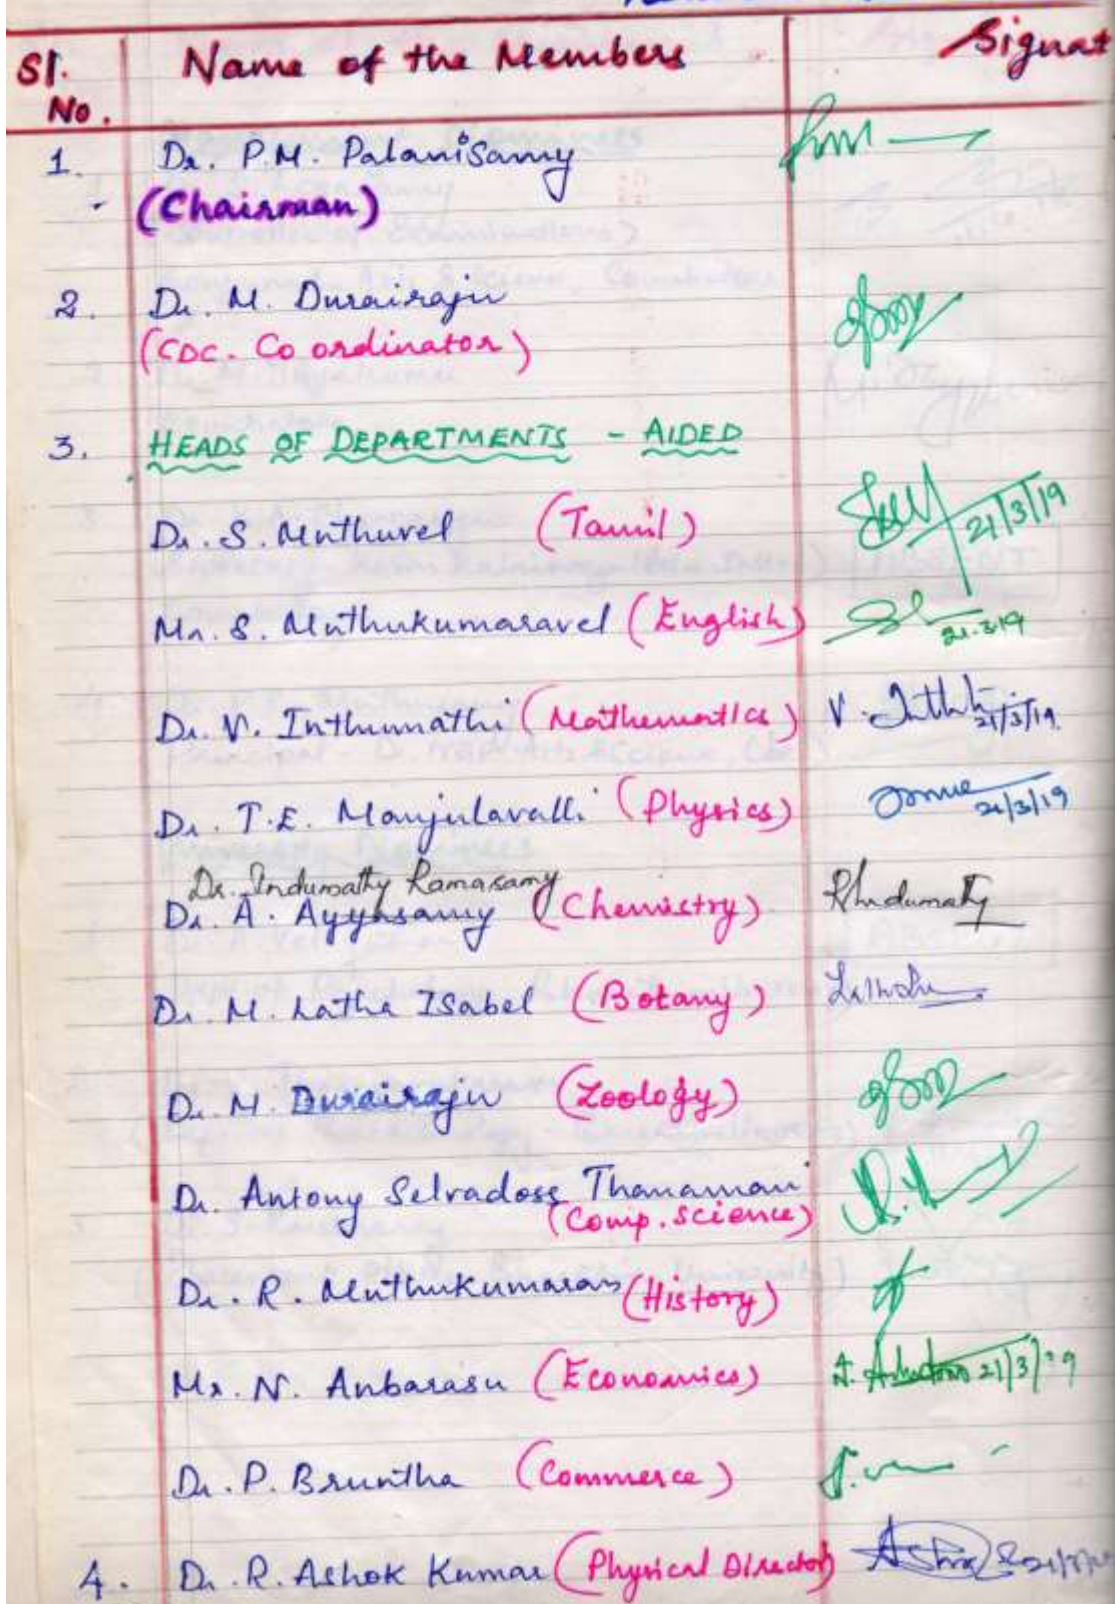 Sl. No. Name of the Members Signat
1. Dr. P.M. Palanisamy
(Chairman)
2. Dr. M. Durairaju
(CDC. Co ordinator)
3. HEADS OF DEPARTMENTS - AIDED
Dr. S. Muthuvel (Tamil) 21/3/19
Mr. S. Muthukumaravel (English) 21.3.19
Dr. V. Inthumathi (Mathematics) V. 21/3/19
Dr. T.E. Manjulavalli (Physics) 21/3/19
Dr. Indumathy Ramasamy
Dr. A. Ayyasamy (Chemistry) RIndumathy
Dr. M. Latha Isabel (Botany)
Dr. M. Durairaju (Zoology)
Dr. Antony Selvadoss Thanamani
(Comp. Science)
Dr. R. Muthukumaran (History)
Mr. N. Anbarasu (Economics) 21/3/19
Dr. P. Bruntha (Commerce)
4. Dr. R. Ashok Kumar (Physical Director)